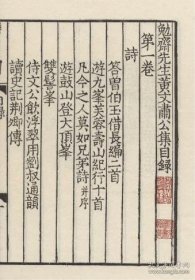 勉齋先生黃文肅公集目録
第一卷
詩
答曾伯玉借長編二首
遊九峯芙蓉壽山紀行十首
凡今之人莫如兄弟詩并序
遊鼓山登大頂峯
雙髻峯
侍文公飲浮翠用劉叔通韻
讀史記荆卿傳